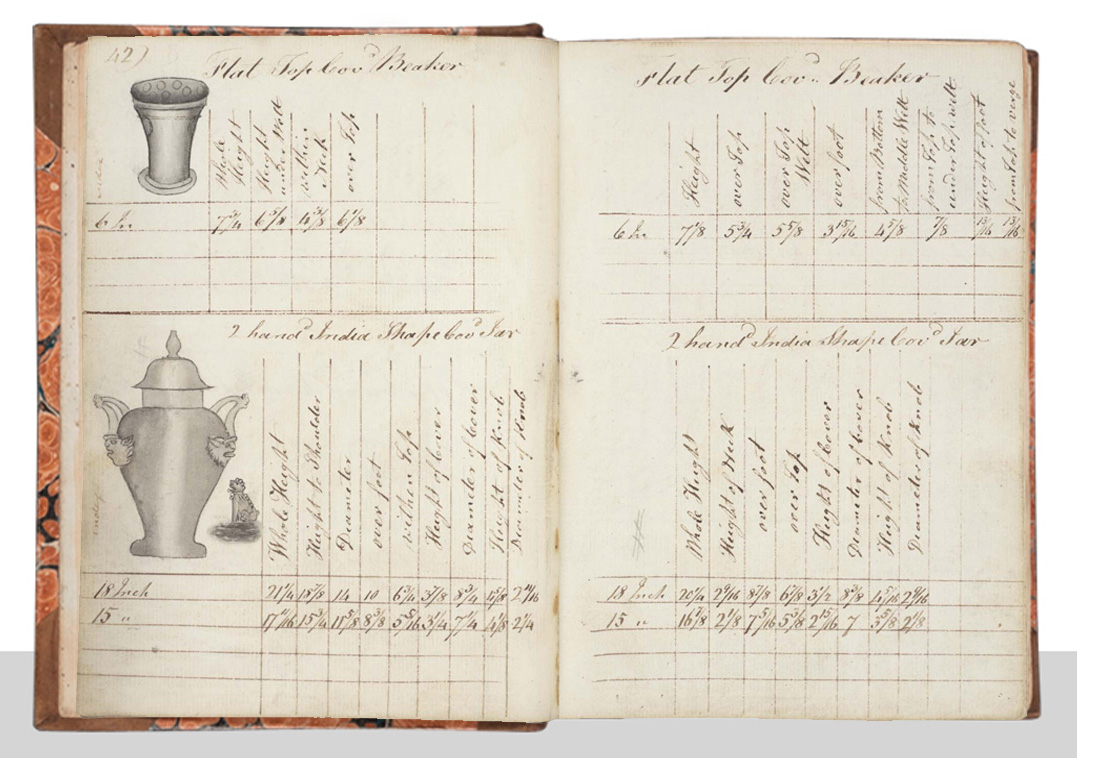 42)
Flat Top Cov.d Beaker
Whole Height
Height under Welt
within Neck
over Top
6 In 7 3/4 6 5/8 4 3/8 6 1/8
2 hand.d India Shape Cov.d Jar
Whole Height
Height to Shoulder
Diameter
over foot
within Top
Height of Cover
Diameter of Cover
Height of Knob
Diameter of Knob
18 Inch 21 1/4 18 7/8 14 10 6 3/4 8 3/4 2 11/16
15 " 17 11/16 15 3/4 11 5/8 8 3/8 5 5/16 3 1/4 7 1/4 4 1/8 2 1/4
Flat Top Cov.d Beaker
Height
over Top
over Top Welt
over foot
from Bottom to Middle Welt
from Top to under Top welt
Height of foot
from top to verge
6 In 7 1/8 5 3/4 5 5/8 3 15/16 4 5/8 7/8 13/16 13/16
2 hand.d India Shape Cov.d Jar
Whole Height
Height of Neck
over foot
over Top
Height of Cover
Diameter of Cover
Height of Knob
Diameter of Knob
18 Inch 20 1/4 2 9/16 8 7/8 6 7/8 3 1/2 8 3/8 4 5/16 2 9/16
15 " 16 7/8 2 1/8 7 5/16 5 3/8 2 15/16 7 3 5/8 2 1/8